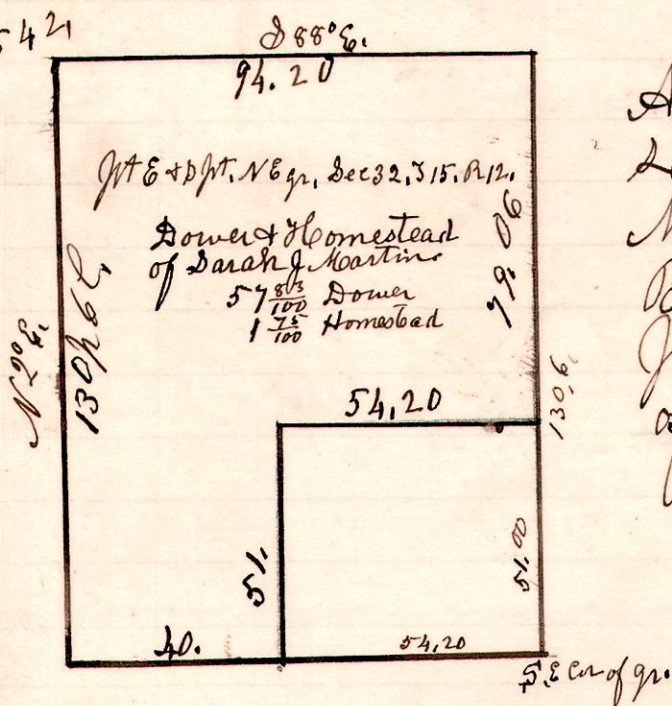 542,
S 88° E.
94.20
Pt E & D Pt. N E qr, Sec 32, T 15. R 12.
Dower & Homestead
of Sarah J. Martin
57 83/100 Dower
1 75/100 Homestead
N 2° E.
79.06
130.6
54,20
51.
51.00
40.
54,20
S. E Cor of qr.